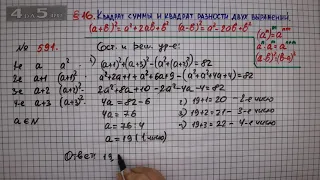 4 5
§16. Квадрат суммы и квадрат разности двух выражений
(a+b)²=a²+2ab+b² (a-b)²=a²-2ab+b²
№ 591. Сост. и реш. ур-е:
1е a a²
2е a+1 (a+1)²
3е a+2 (a+2)²
4е a+3 (a+3)²
a∈N
(a+1)²+(a+3)²-(a²+(a+2)²)=82
a²+2a+1+a²+6a+9-(a²+a²+4a+4)=82
2a²+8a+10-2a²-4a-4=82
4a=82-6
4a=76
a=76:4
a=19 (1 число)
19+1=20 - 2-е число
19+2=21 - 3-е число
19+3=22 - 4-е число
Ответ: 19